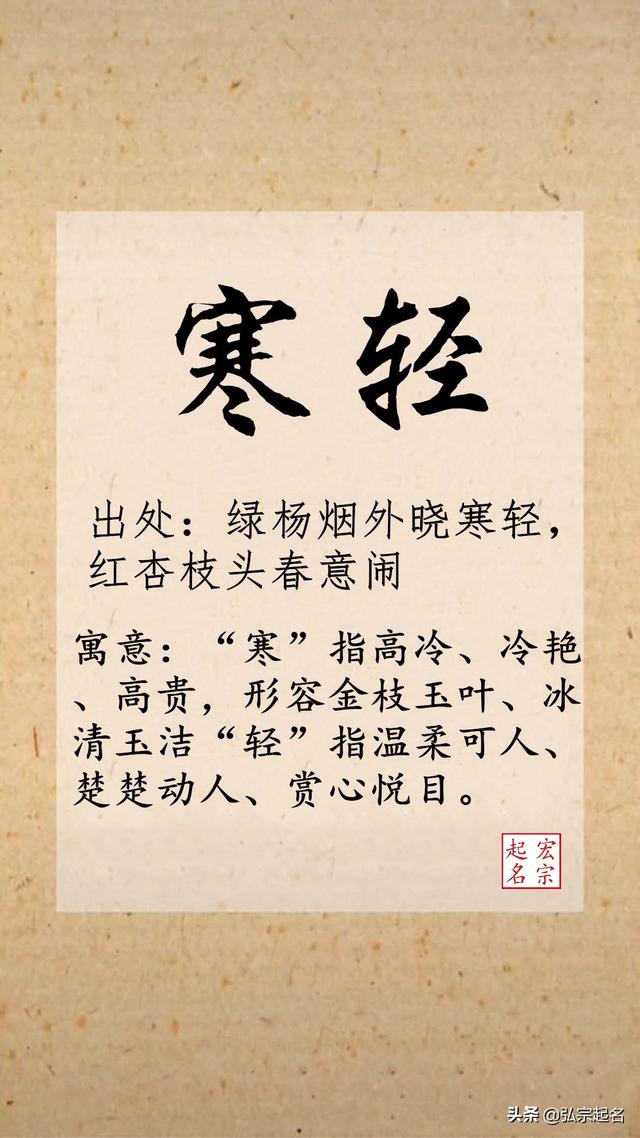 寒轻
出处：绿杨烟外晓寒轻，
红杏枝头春意闹
寓意：“寒”指高冷、冷艳
、高贵，形容金枝玉叶、冰
清玉洁“轻”指温柔可人、
楚楚动人、赏心悦目。
宏宗
起名
头条 @弘宗起名